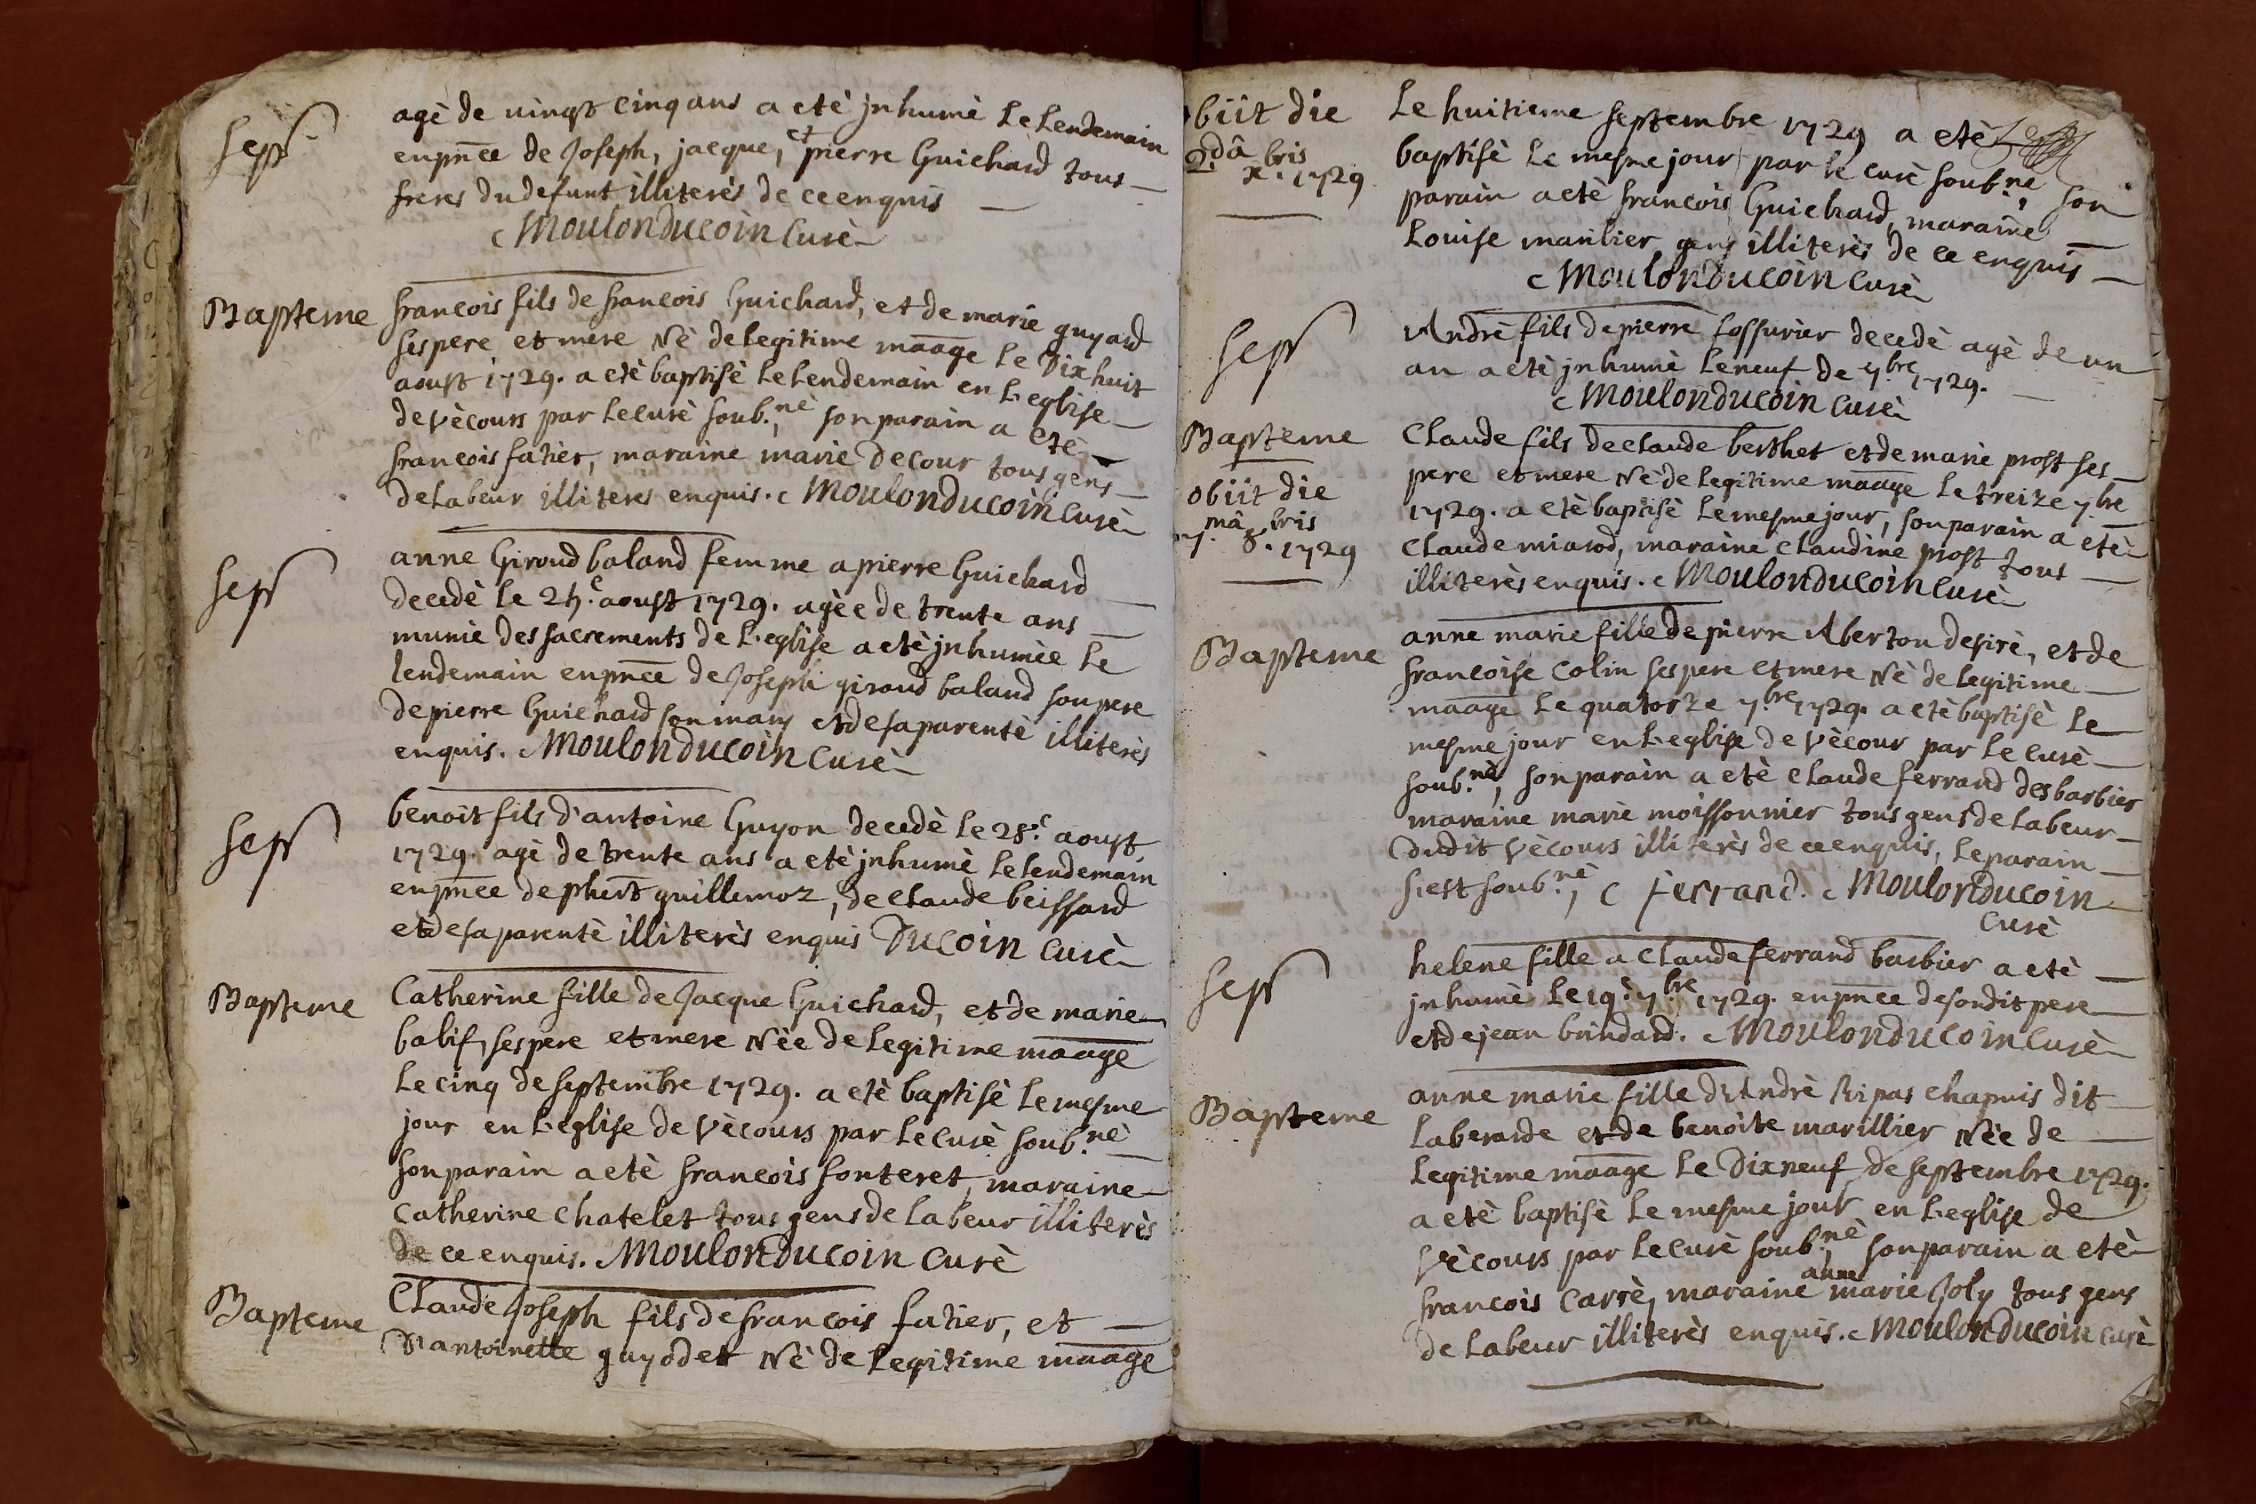 sep.r
agè de vingt cinq ans a etè jnhumè Le Lendemain
enpn̄ce de Joseph, jacque, et pierre Guichard tous
freres du defunt illiterès de ce enquis
Moulonducoin Curè
Bapteme
francois fils de francois Guichard, et de marie guyard
ses pere et mere Nè de legitime māage Le Dixhuit
aoust 1729. a etè baptisè Le lendemain en L'eglise
de Vècours par Le Curè soub.nè, son parain a etè
francois fatier, maraine marie Decour tous gens
de Labeur illiteres enquis. Moulonducoin Curè
sep.r
anne Giroud baland femme a pierre Guichard
decedè Le 24.e aoust 1729. agèe de trente ans
munie des sacrements de L'eglise a etè jnhumèe Le
lendemain enpn̄ce de Joseph giroud baland son pere
de pierre Guichard son mary et de sa parentè illiterès
enquis. Moulonducoin Curè
sep.r
benoit fils d'antoine Guyon decedè Le 28.e aoust
1729. agè de trente ans a etè jnhumè Le lendemain
enpn̄ce de phert guillemoz, de Claude beissard
et de sa parentè illiterès enquis Ducoin Curè
Bapteme
Catherine fille de Jacque Guichard, et de marie
balif, ses pere et mere Nèe de legitime māage
Le Cinq de septembre 1729. a etè baptisè Le mesme
jour en L'eglise de Vècours par Le Curè soub.nè
son parain a etè francois fonteret, maraine
Catherine Chatelet tous gens de Labeur illiterès
de ce enquis. Moulonducoin Curè
Bapteme
Claude Joseph fils de francois fatier, et
D'antoinette guyodet Nè de Legitime māage
obiit die
2.dâ x.bris 1729
Le huitieme septembre 1729 a etè
baptisè Le mesme jour par le curè soub.nè, son
parain a etè francois Guichard, maraine
Louise marilier gens illiterès de ce enquis
Moulonducoin Curè
sep.r
Andrè fils de pierre fossurier decedè agè de un
an a etè jnhumè Le neuf de 7.bre 1729.
Moulonducoin Curè
Bapteme
obiit die
7.mâ 8.bris 1729
Claude fils de Claude berthet et de marie prost ses
pere et mere Nè de legitime māage Le treize 7bre
1729. a etè baptisè Le mesme jour, son parain a etè
Claude miarod, maraine Claudine prost tous
illiterès enquis. Moulonducoin Curè
Bapteme
anne marie fille de pierre Aberton desirè, et de
francoise Colin ses pere et mere Nè de legitime
māage Le quatorze 7.bre 1729. a etè baptisè Le
mesme jour en L'eglise de Vècour par Le Curè
soub.nè, son parain a etè Claude ferrand des barbier
maraine marie moissonnier tous gens de Labeur
dudit Vècours illiterès de ce enquis, Le parain
s'est soub.nè, ferrand. Moulonducoin
Curè
sep.r
helene fille a Claude ferrand barbier a etè
jnhumè Le 19.e 7.bre 1729. enpn̄ce de son dit pere
et de jean brindard. Moulonducoin Curè
Bapteme
anne marie fille d'Andrè Ripas Chapuis dit
Laberarde et de benoite marillier Nèe de
Legitime māage Le Dixneuf de septembre 1729.
a etè baptisè Le mesme jour en L'eglise de
Vècours par Le Curè soub.nè, son parain a etè
francois Carrè, maraine anne marie Joly tous gens
de Labeur illiterès enquis. Moulonducoin Curè